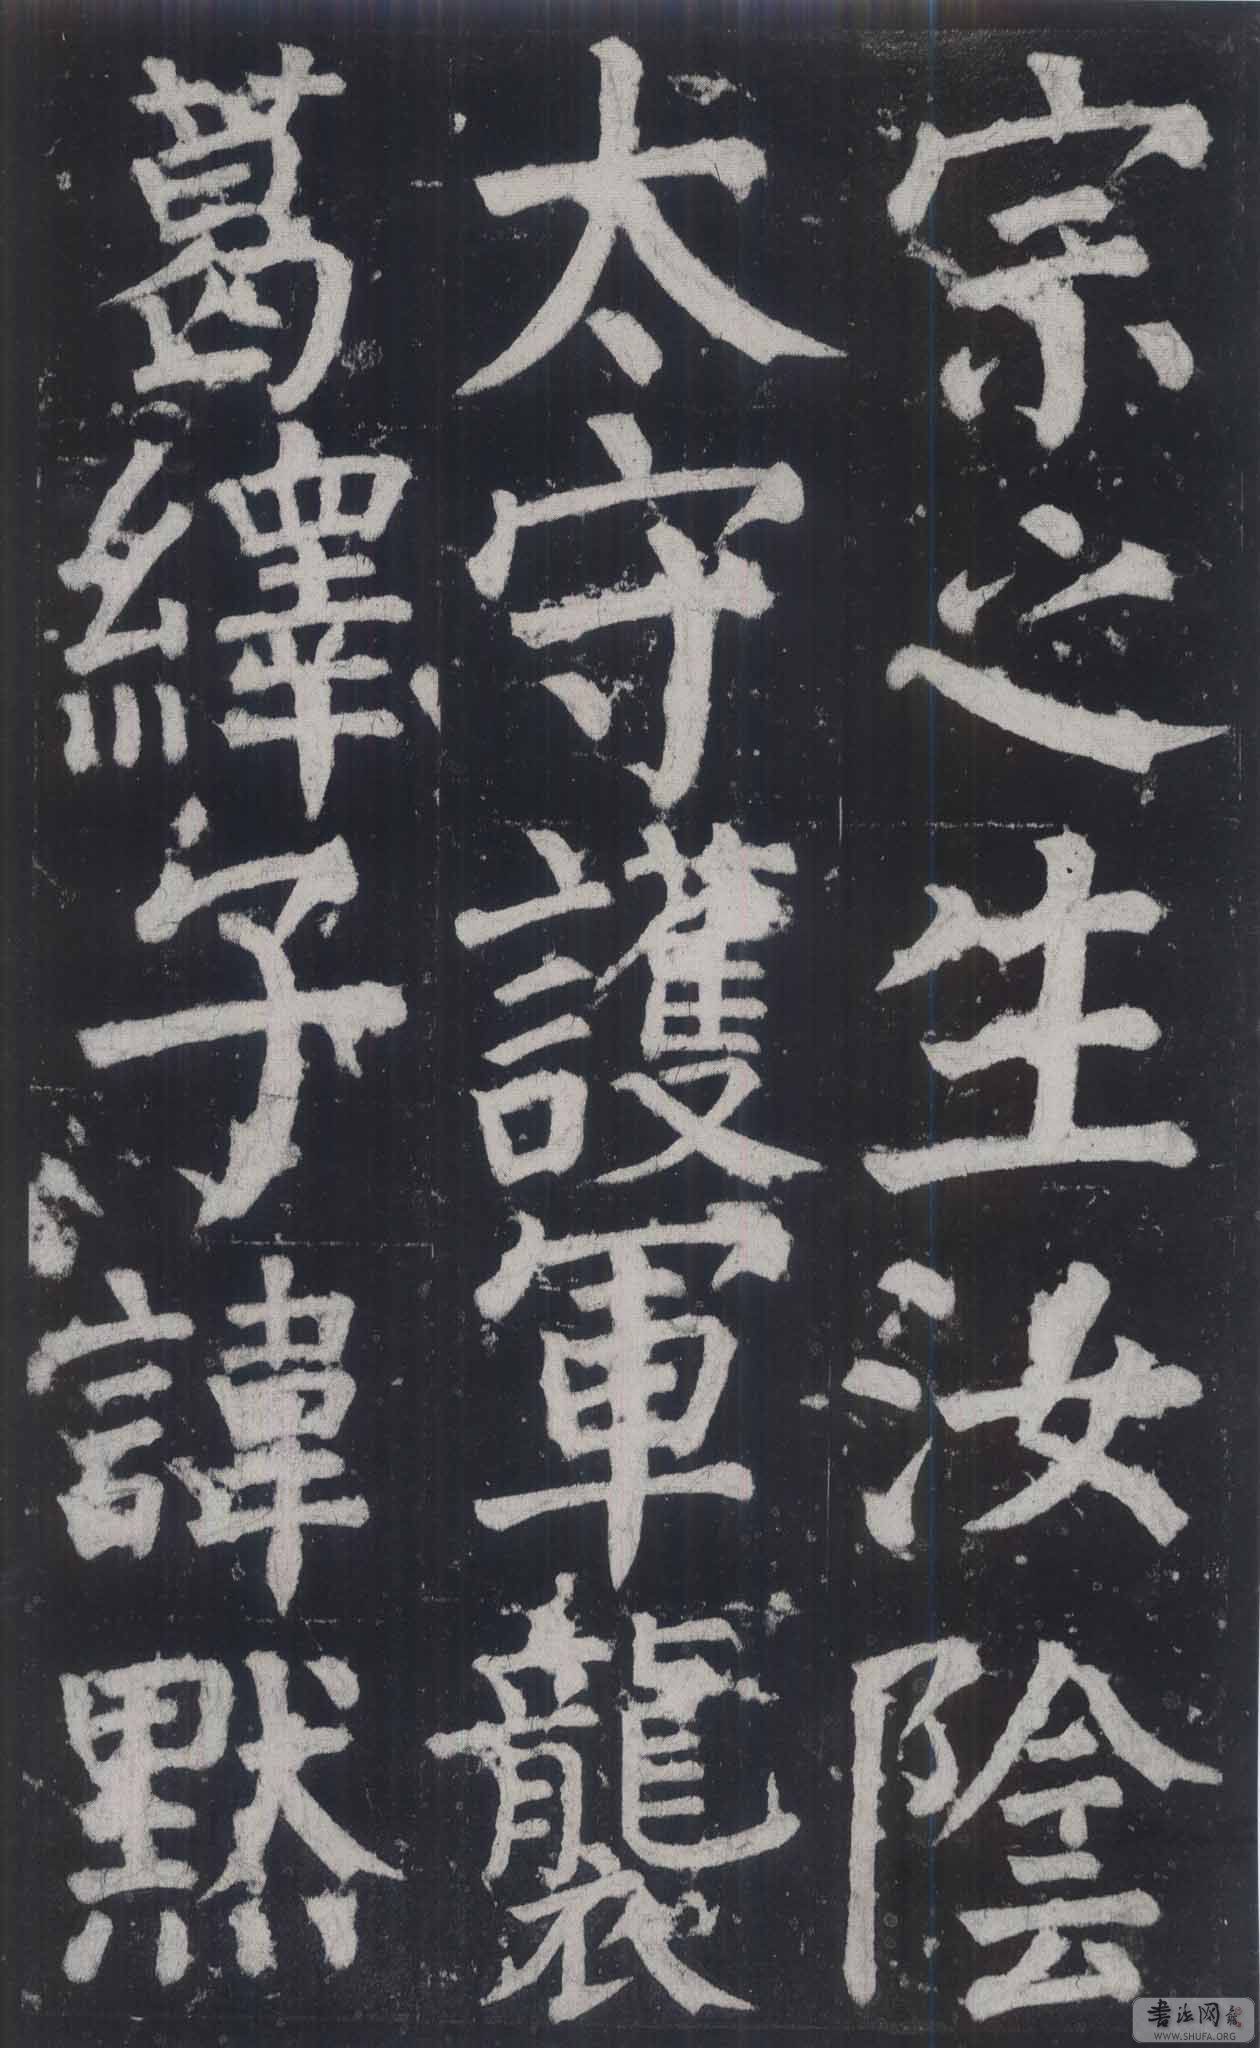 宗之生汝陰
太守護軍襲
葛繹子諱黙
書法网
WWW.SHUFA.ORG